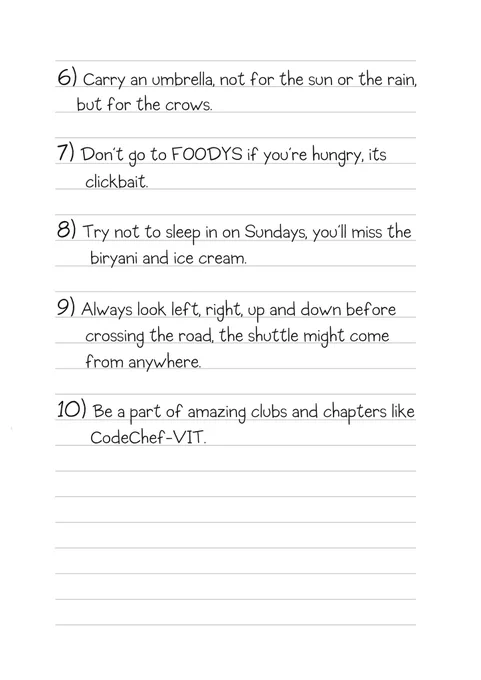 6) Carry an umbrella, not for the sun or the rain,
but for the crows.
7) Don't go to FOODYS if you're hungry, its
clickbait.
8) Try not to sleep in on Sundays, you'll miss the
biryani and ice cream.
9) Always look left, right, up and down before
crossing the road, the shuttle might come
from anywhere.
10) Be a part of amazing clubs and chapters like
CodeChef-VIT.